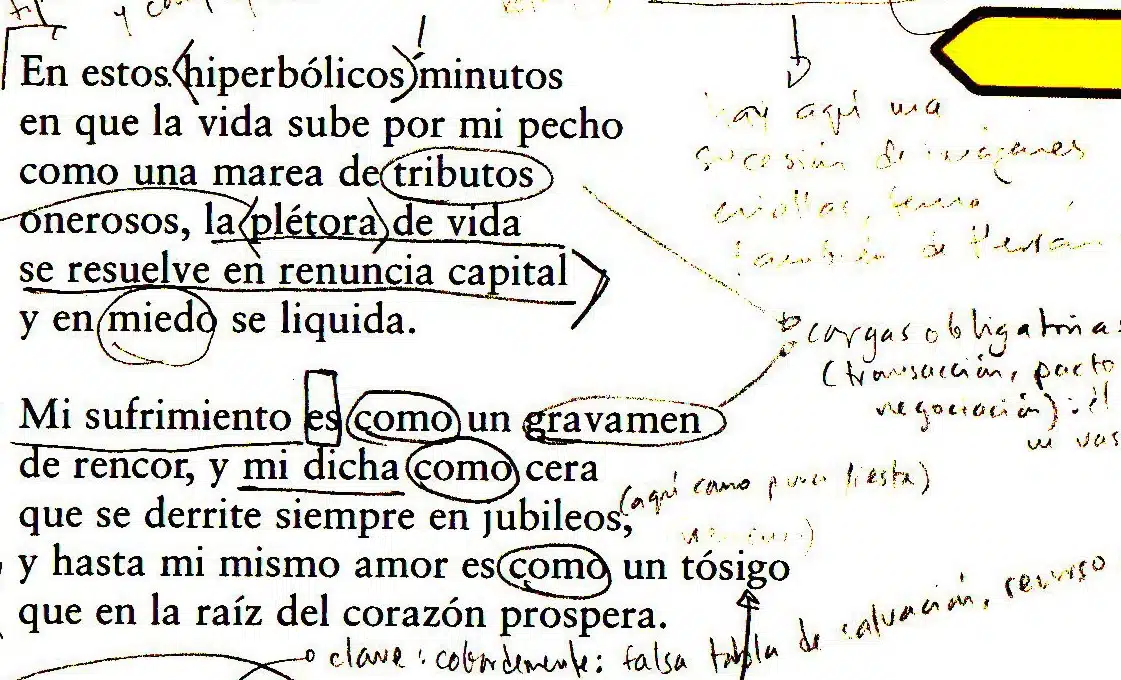 En estos hiperbólicos minutos
en que la vida sube por mi pecho
como una marea de tributos
onerosos, la plétora de vida
se resuelve en renuncia capital
y en miedo se liquida.
Mi sufrimiento es como un gravamen
de rencor, y mi dicha como cera
que se derrite siempre en jubileos,
y hasta mi mismo amor es como un tósigo
que en la raíz del corazón prospera.
hay aquí una
sucesión de imágenes
criollas,
también de
cargas obligatorias
(transacción, pacto
negociación):
(aquí como pura fiesta)
clave: cobardemente: falsa tabla de salvación, recurso